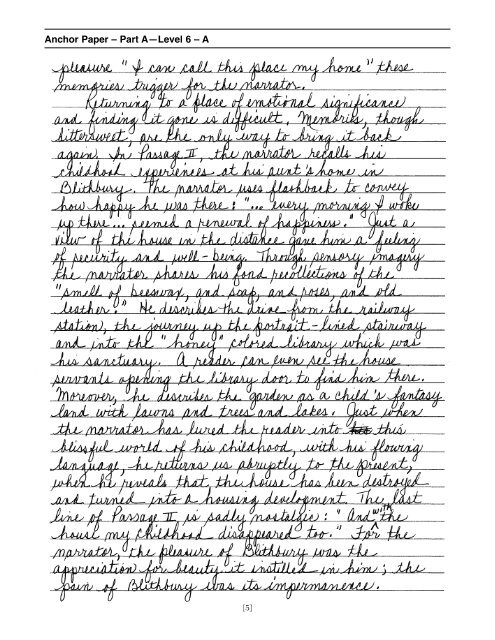 Anchor Paper – Part A—Level 6 – A
pleasure "I can call this place my home" these
memories trigger for the narrator.
Returning to a place of emotional significance
and finding it gone is difficult. Memories, though
bittersweet, are the only way to bring it back
again. In Passage II, the narrator recalls his
childhood experiences at his aunt's home in
Blithbury. The narrator uses flashback to convey
how happy he was there: "... every morning I woke
up there... seemed a renewal of happiness." Just a
view of the house in the distance gave him a feeling
of security and well-being. Through sensory imagery
the narrator shares his fond recollections of the
"smell of beeswax, and soap, and roses, and old
leather." He describes the drive from the railway
station, the journey up the portrait-lined stairway
and into the "honey" colored library which was
his sanctuary. A reader can even see the house
servants opening the library door to find him there.
Moreover, he describes the garden as a child's fantasy
land with lawns and trees and lakes. Just when
the narrator has lured the reader into this
blissful world of his childhood, with his flowing
language, he returns us abruptly to the present,
when he reveals that the house has been destroyed
and turned into a housing development. The last
line of Passage II is sadly nostalgic: "And with the
house my childhood disappeared too." For the
narrator, the pleasure of Blithbury was the
appreciation for beauty it instilled in him; the
pain of Blithbury was its impermanence.
[5]